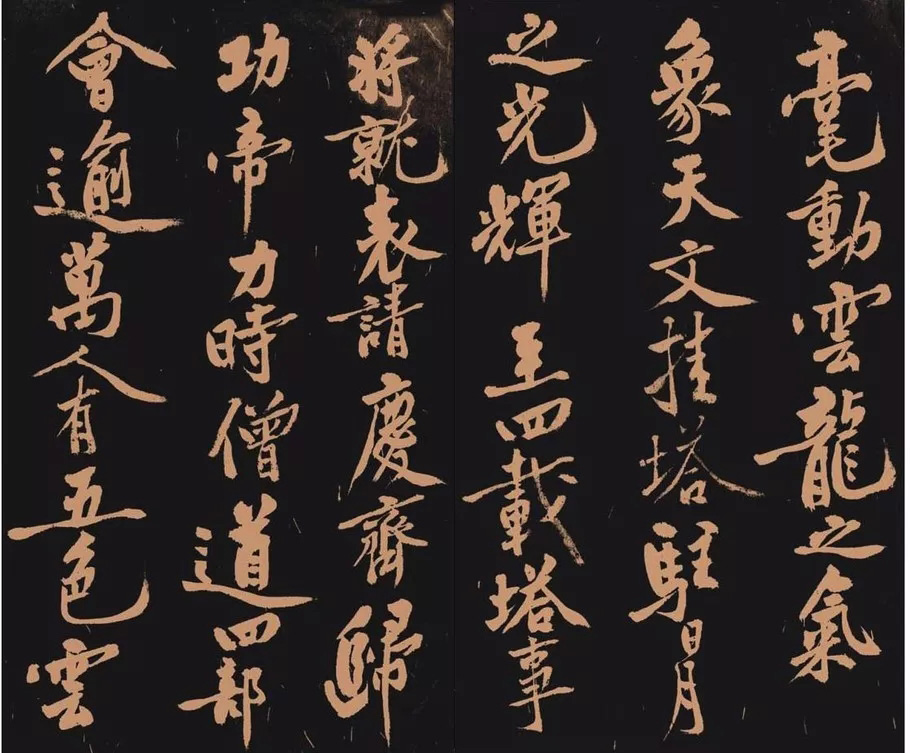 毫動雲龍之氣
象天文挂塔駐日月
之光輝至四載塔事
將就表請慶齊歸
功帝力時僧道四部
會逾萬人有五色雲